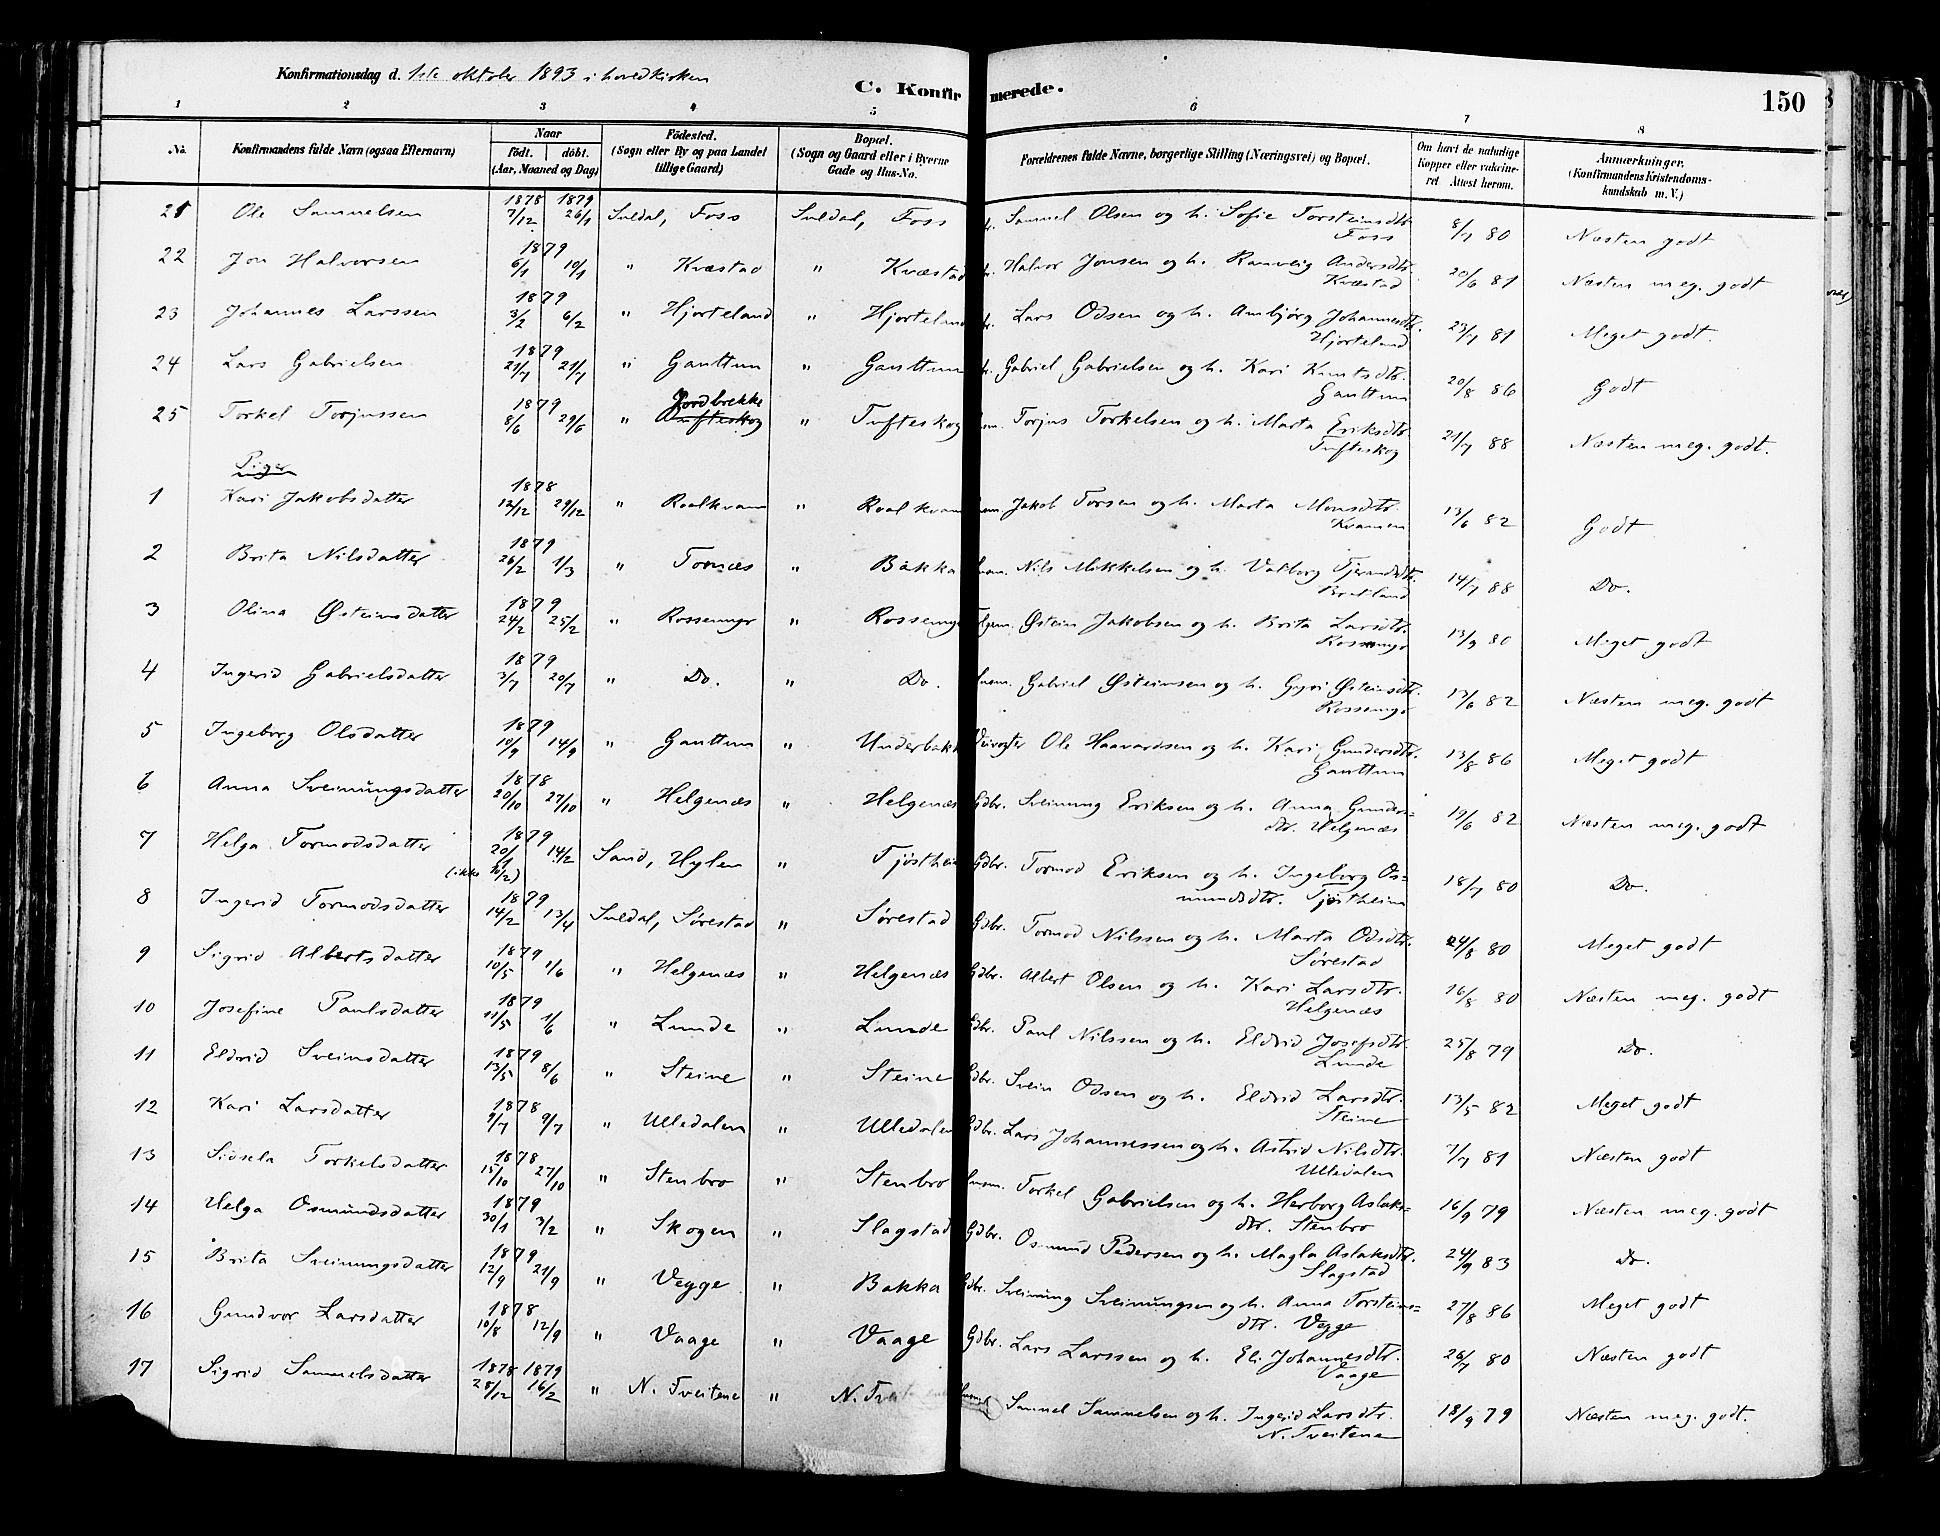 Konfirmationsdag d. 1ste oktober 1893 i hovedkirken
C. Konfirmerede.
150
1 2 3 4 5 6 7 8
No. Konfirmandens fulde Navn (ogsaa Efternavn) Naar födt. döbt. (Aar, Maaned og Dag) Födested. (Sogn eller By og paa Landet tillige Gaard) Bopæl. (Sogn og Gaard eller i Byerne Gade og Hus-No. Forældrenes fulde Navne, borgerlige Stilling (Næringsvei) og Bopæl. Om havt de naturlige Kopper eller vakcineret Attest herom. Anmærkninger. (Konfirmandens Kristendomskundskab m. V.)
21 Ole Samuelsen 1878 7/12 1879 26/1 Suldal, Foss Suldal, Foss Samuel Olsen og h. Sofie Torsteinsdtr. Foss 8/7 80 Næsten godt
22 Jon Halvorsen 1879 6/1 10/1 " Kvæstad " Kvæstad Halvor Jonsen og h. Ranveig Andersdtr. Kvæstad 20/6 81 Næsten meg. godt
23 Johannes Larssen 1879 3/2 6/2 " Hjorteland " Hjorteland Lars Odsen og h. Ambjørg Johannesdtr. Hjorteland 23/7 81 Meget godt.
24 Lars Gabrielsen 1879 21/7 21/7 " Gauttun " Gauttun Gabriel Gabrielsen og h. Kari Knutsdtr. Gauttun 20/8 86 Godt
25 Torkel Torjussen 1879 8/6 29/6 " Jordbrekke Tufteskog " Tufteskog Torjus Torkelsen og h. Marta Eriksdtr. Tufteskog 21/7 88 Næsten meg. godt.
Piger
1 Kari Jakobsdatter 1878 12/12 29/12 " Roalkvam " Roalkvam Jakob Torsen og h. Marta Monsdtr. Kvamen 13/6 82 Godt
2 Brita Nilsdatter 1879 26/2 1/3 " Tornæs " Bakka Nils Mikkelsen og h. Valborg Bratland 14/7 88 Do.
3 Olina Østeinsdatter 1879 24/2 25/2 " Rossemyr " Rossemyr Østein Jakobsen og h. Brita Larsdtr. Rossemyr 13/9 80 Meget godt
4 Ingerid Gabrielsdatter 1879 3/7 20/7 " Do. " Do. Gabriel Østeinsen og h. Gyri Østeinsdtr. Rossemyr 13/6 82 Næsten meg. godt
5 Ingeborg Olsdatter 1879 10/9 14/9 " Gauttun " Underbakk Ole Haavardsen og h. Kari Gundersdtr. Gauttun 13/8 86 Meget godt
6 Anna Sveinungsdatter 1878 20/10 27/10 " Helgenæs " Helgenæs Gdbr. Sveinung Eriksen og h. Anna Gundersdtr. Helgenæs 19/6 82 Næsten meg. godt
7 Helga Tormodsdatter 1879 20/1 14/2 Sand, Hylen " Tjøstheim Gdbr. Tormod Eriksen og h. Ingeborg Osmundsdtr. Tjøstheim 18/7 80 Do.
8 Ingerid Tormodsdatter 1879 14/2 13/4 Suldal, Sørestad " Sørestad Gdbr. Tormod Nilssen og h. Marta Odsdtr. Sørestad 24/8 80 Meget godt
9 Sigrid Albertsdatter 1879 10/5 1/6 " Helgenæs " Helgenæs Gdbr. Albert Olsen og h. Kari Larsdtr. Helgenæs 16/8 80 Næsten meg. godt
10 Josefine Paulsdatter 1879 11/5 1/6 " Lunde " Lunde Gdbr. Paul Nilssen og h. Eldrid Josefsdtr. Lunde 25/8 79 Do.
11 Eldrid Sveinsdatter 1879 13/5 8/6 " Steine " Steine Gdbr. Svein Odsen og h. Eldrid Larsdtr. Steine 13/5 82 Meget godt
12 Kari Larsdatter 1878 2/7 9/7 " Ulledalen " Ulledalen Gdbr. Lars Johannessen og h. Astrid Nilsdtr. Ulledalen 7/7 81 Næsten godt
13 Sidsela Torkelsdatter 1878 15/10 27/10 " Stenbro " Stenbro Husm. Torkel Gabrielsen og h. Herborg Aslaksdtr. Stenbro 16/9 79 Næsten meg. godt
14 Helga Osmundsdatter 1879 30/1 3/2 " Skogen " Slagstad Gdbr. Osmund Pedersen og h. Magla Aslaksdtr. Slagstad 24/9 83 Do.
15 Brita Sveinungsdatter 1879 12/9 21/9 " Vegge " Bakka Gdbr. Sveinung Sveinungsen og h. Anna Torsteinsdtr. Vegge 27/8 86 Meget godt
16 Gundvor Larsdatter 1878 10/8 12/9 " Vaage " Vaage Gdbr. Lars Larssen og h. Eli Johannesdtr. Vaage 26/7 80 Næsten godt
17 Sigrid Samuelsdatter 1878 28/12 1879 16/2 " N. Tveitene " N. Samuel Samuelsen og h. Ingerid Larsdtr. N. Tveitene 18/9 79 Næsten meg. godt.